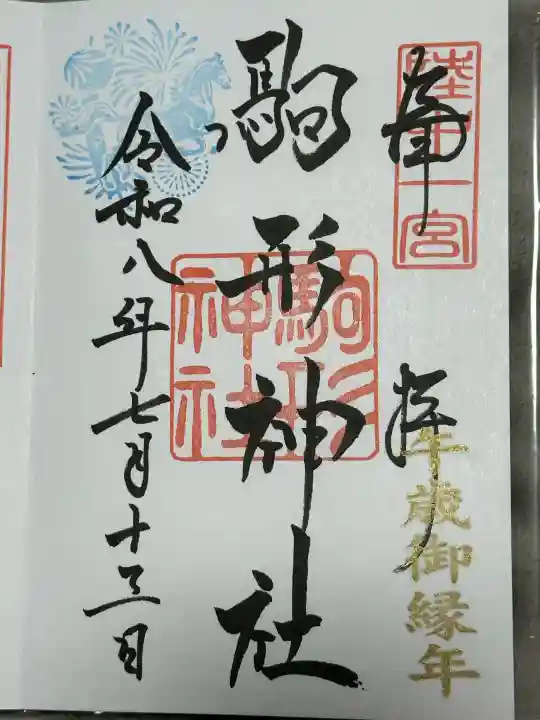 奉拝
陸中一宮
午歳御縁年
駒形神社
駒形神社
令和八年七月十三日